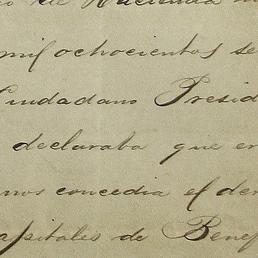 de Hacienda
mil ochocientos se
Ciudadano Presid
declaraba que en
nos concedia el der
apitales de Benef